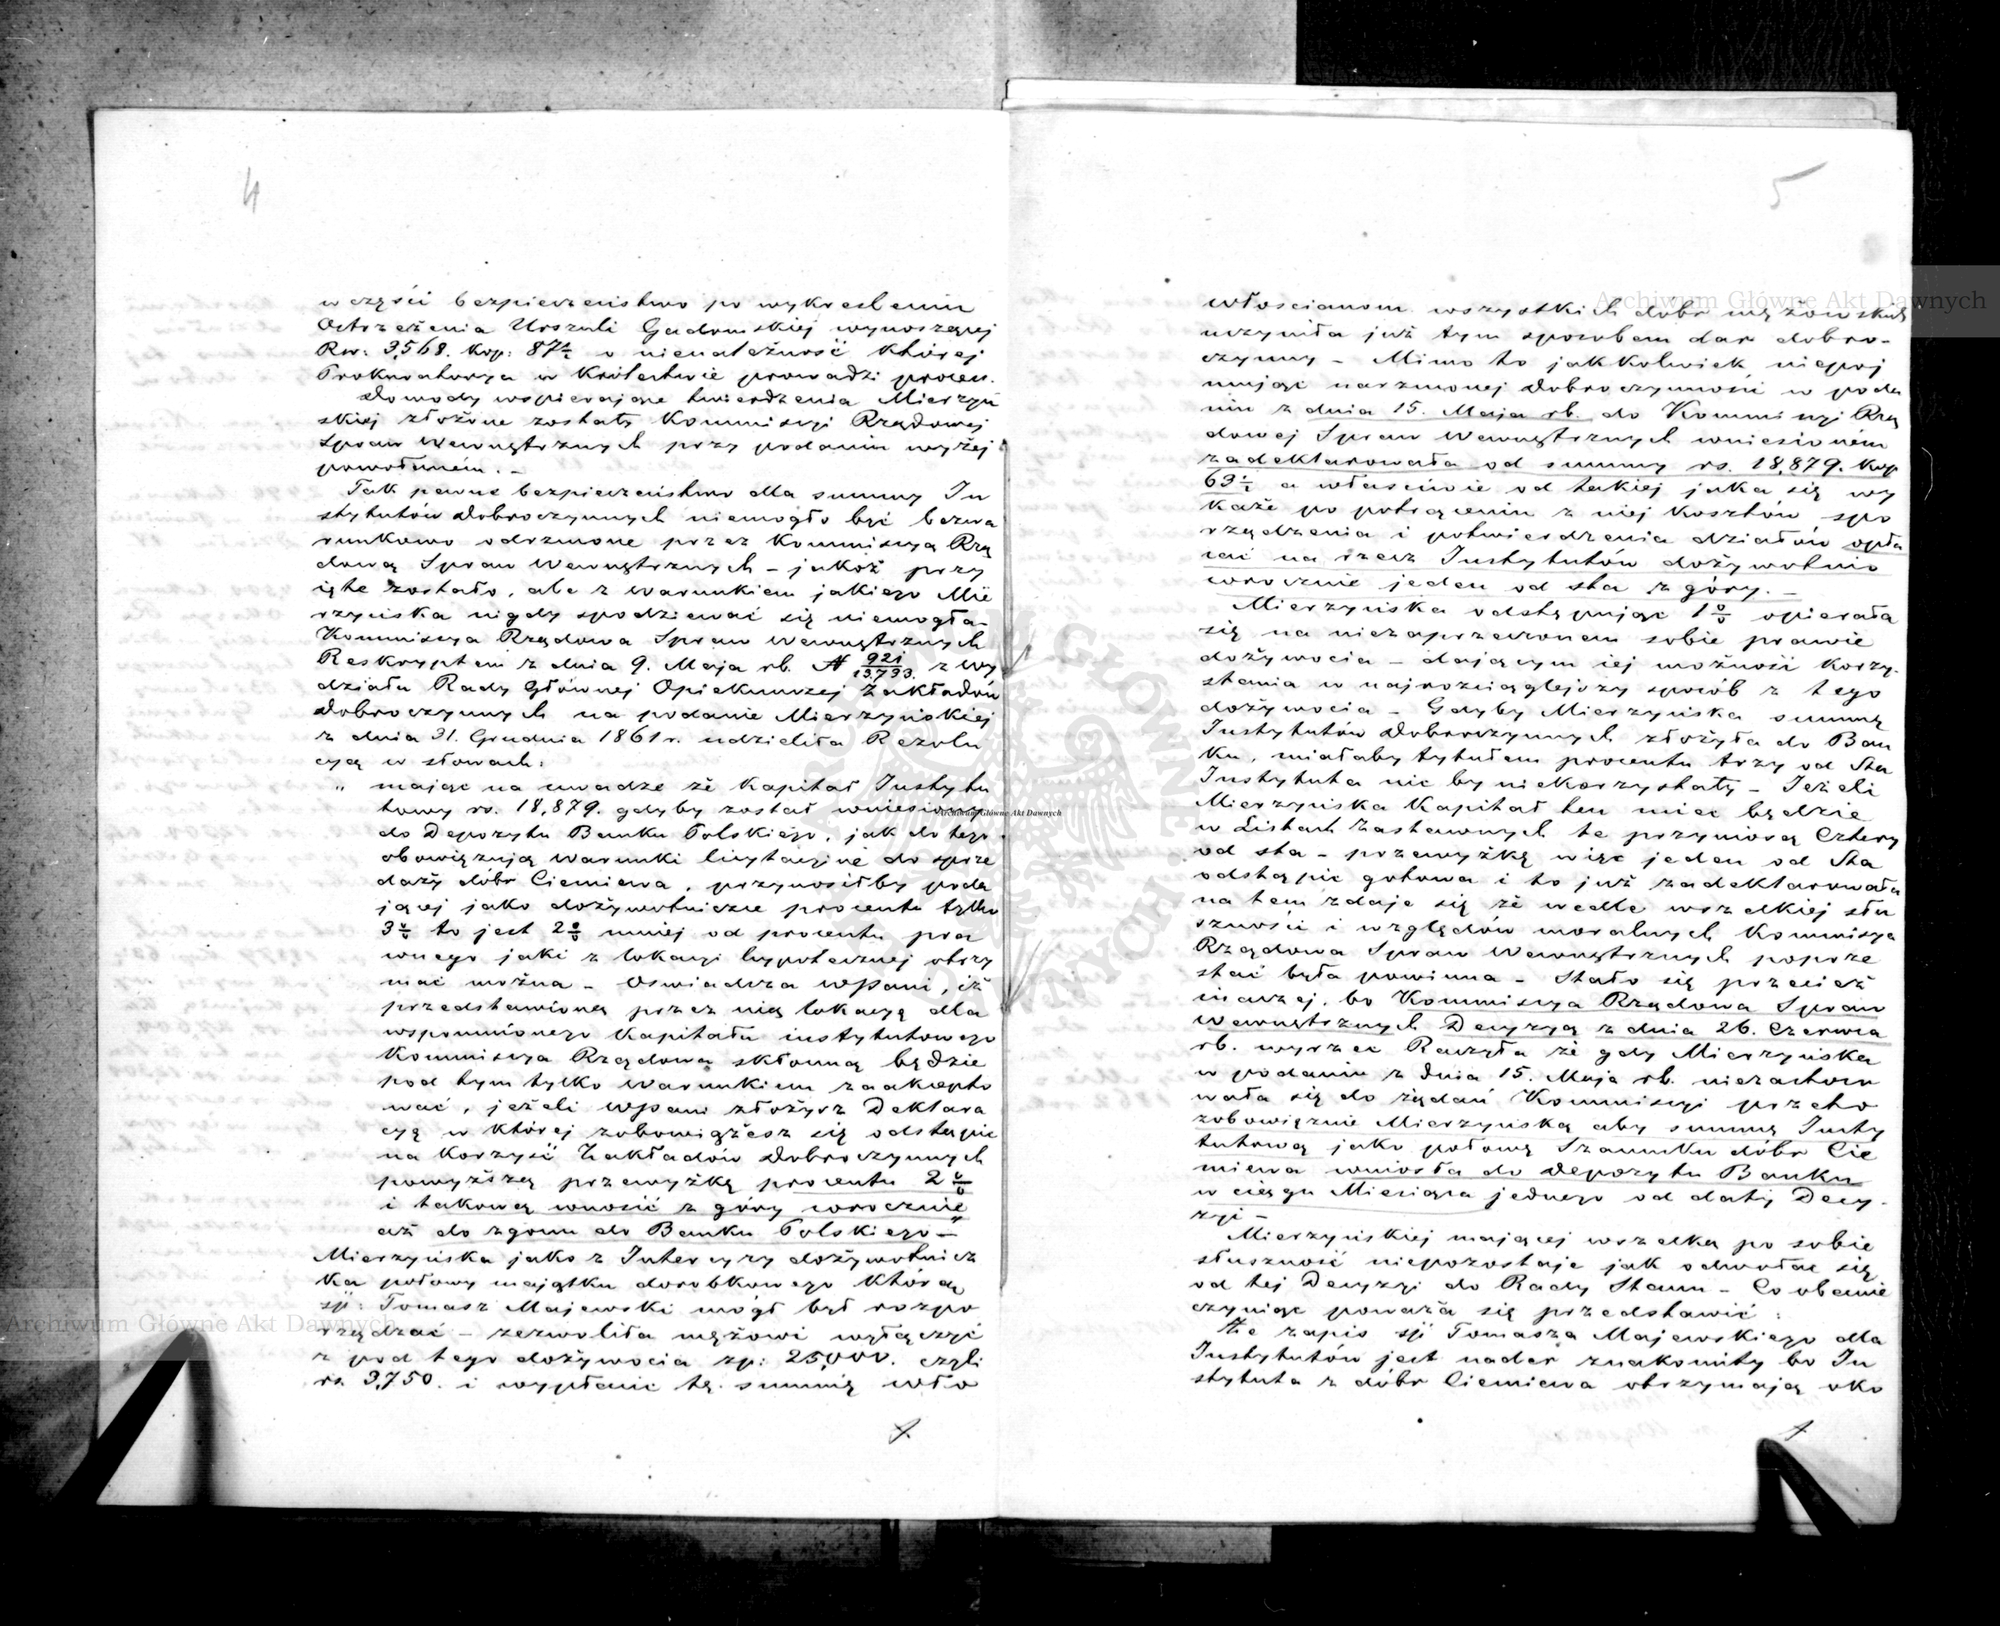 4
w części bezpieczeństwo po wykreśleniu
Ostrzeżenia Urszuli Gadomskiej wynoszącej
Rsr: 3,568. Kop: 87½ o nienależność której
Prokuratorya w Królestwie prowadzi proces.
Dowody wspierające twierdzenia Mierzyń
skiej złożone zostały Kommissyi Rządowej
Spraw Wewnętrznych przy podaniu wyżej
powołanem. –
Tak pewne bezpieczeństwo dla summy In
stytutów Dobroczynnych niemogło być bezwa
runkowo odrzucone przez Kommissyą Rzą
dową Spraw Wewnętrznych – jakoż przy
jęte zostało, ale z warunkiem jakiego Mie
rzyńska nigdy spodziewać się niemogła –
Kommissya Rządowa Spraw Wewnętrznych
Reskryptem z dnia 9. Maja rb. N 921/13,793. z Wy
działu Rady Głównej Opiekuńczej Zakładów
Dobroczynnych na podanie Mierzyńskiej
z dnia 31. Grudnia 1861 r. udzieliła Rezolu
cyą w słowach:
„ mając na uwadze że Kapitał Instytu
towy rs. 18,879. gdyby został wniesiony
do Depozytu Banku Polskiego, jak do tego
obowiązują warunki licytacyjne do sprze
daży dóbr Ciemiewa, przynosiłby poda
jącej jako dożywotniczce procentu tylko
3% to jest 2% mniej od procentu pra
wnego jaki z lokacyi hypotecznej otrzy
mać można – Oświadcza WPani, iż
przedstawioną przez nią lokacyą dla
wspomnionego Kapitału instytutowego
Kommissya Rządowa skłonną będzie
pod tym tylko warunkiem zaakcepto
wać, jeżeli WPani złożysz Deklara
cyą w której zobowiążesz się odstąpić
na Korzyść Zakładów Dobroczynnych
powyższą przewyżkę procentu 2%
i takową wnosić z góry corocznie
aż do zgonu do Banku Polskiego" –
Mierzyńska jako z Intercyzy dożywotnicz
ka połowy majątku dorobkowego którą
śp: Tomasz Majewski mógł był rozpo
rządzać – zezwoliła mężowi wyłączyć
z pod tego dożywocia zp: 25,000. czyli
rs. 3,750. i wypłacić tę summę wło
5
włościanom wszystkich dóbr mężowskich
uczyniła już tym sposobem dar dobro-
czynny – Mimo to jakkolwiek niepoj
mując narzuconej Dobroczynności w poda
niu z dnia 15. Maja rb. do Kommissyi Rzą
dowej Spraw Wewnętrznych wniesionem
zadeklarowała od summy rs. 18,879. kop
63½ a właściwie od takiej jaka się wy
każe po potrąceniu z niej Kosztów spo
rządzenia i potwierdzenia działów opła
cać na rzecz Instytutów dożywotnio
corocznie jeden od sta z góry. –
Mierzyńska odstępując 1% opierała
się na niezaprzeczonem sobie prawie
dożywocia – dającym jej możność korzy-
stania w najrozciąglejszy sposób z tego
dożywocia – Gdyby Mierzyńska summę
Instytutów Dobroczynnych złożyła do Ban
ku, miałaby tytułem procentu trzy od Sta
Instytuta nic by nie Korzystały – Jeżeli
Mierzyńska Kapitał ten mieć będzie
w Listach Zastawnych te przyniosą Cztery
od sta – przewyżkę więc jeden od Sta
odstąpić gotowa i to już zadeklarowała
na tem zdaje się że wedle wszelkiej słu
szności i względów moralnych Kommissya
Rządowa Spraw Wewnętrznych poprze
stać była powinna – Stało się przecież
inaczej, bo Kommissya Rządowa Spraw
Wewnętrznych Decyzyą z dnia 26. Czerwca
rb. wyrzec Raczyła że gdy Mierzyńska
w podaniu z dnia 15. Maja rb. niezastoso
wała się do żądań Kommissyi przeto
zobowiąznie Mierzyńską aby summę Insty
tutową jako połowę Szacunku dóbr Cie
miewa wniosła do Depozytu Banku
w ciągu Miesiąca jednego od daty Decy-
zyi –
Mierzyńskiej mającej wszelką po sobie
słuszność niepozostaje jak odwołać się
od tej Decyzyi do Rady Stanu – Co obecnie
czyniąc poważa się przedstawić:
Że zapis śp Tomasza Majewskiego dla
Instytutów jest nader znakomity bo In
stytuta z dóbr Ciemiewa otrzymają oko
Archiwum Główne Akt Dawnych
Archiwum Główne Akt Dawnych
Archiwum Główne Akt Dawnych